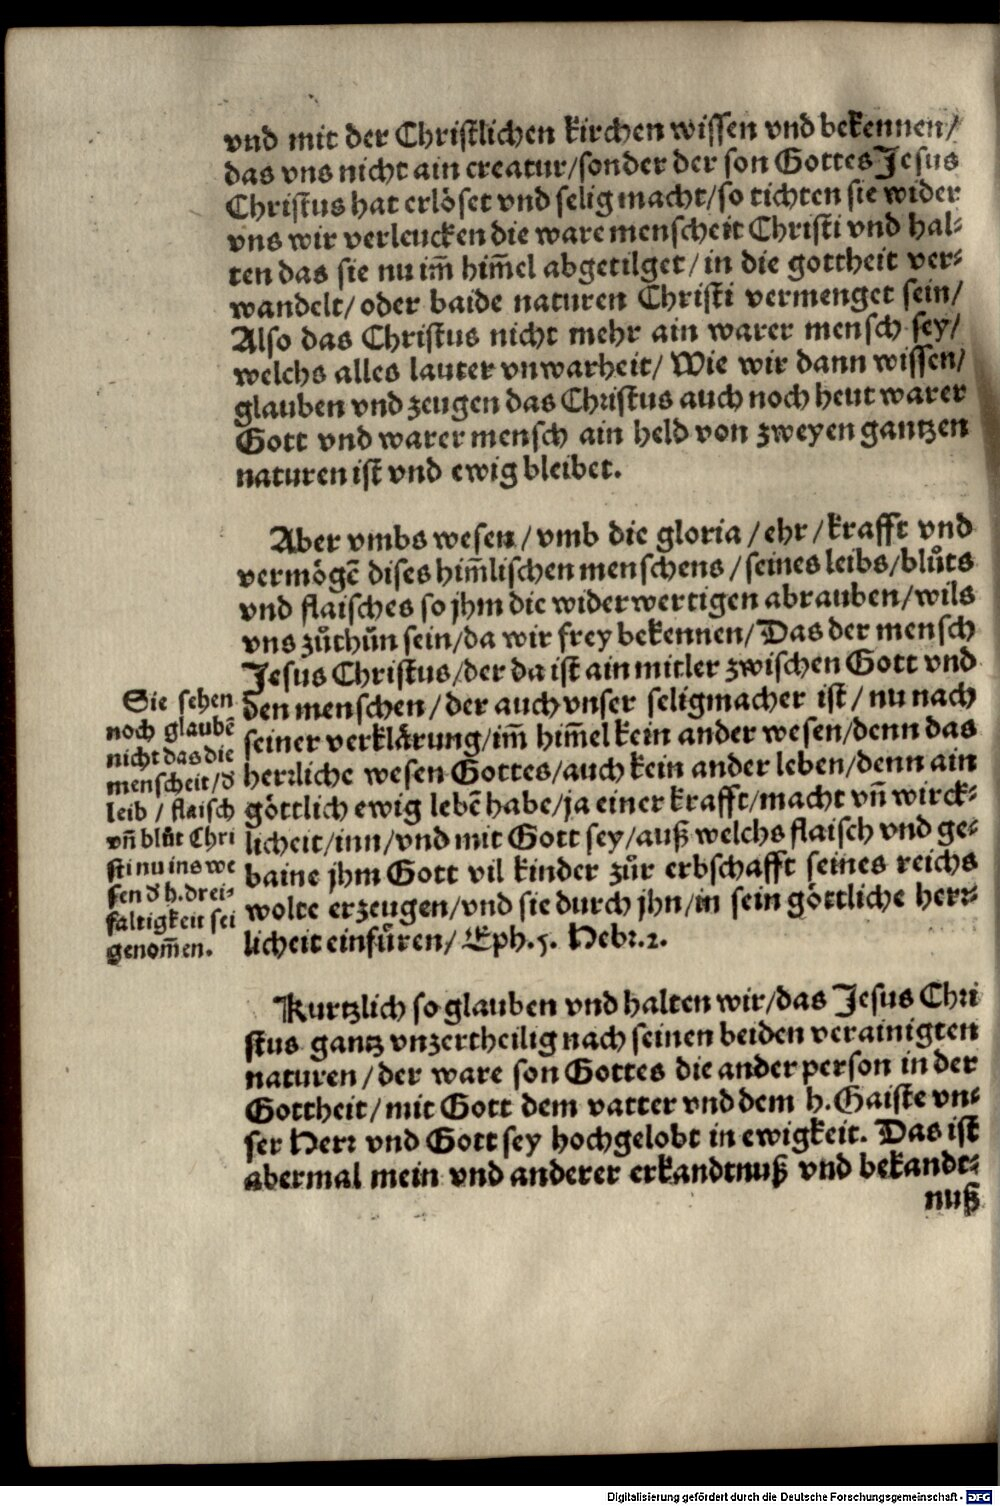 vnd mit der Christlichen kirchen wissen vnd bekennen/
das vns nicht ain creatur/sonder der son Gottes Jesus
Christus hat erlöset vnd selig macht/so tichten sie wider
vns wir verleucken die ware menscheit Christi vnd hal⸗
ten das sie nu im̄ him̄el abgetilget/in die gottheit ver⸗
wandelt/oder baide naturen Christi vermenget sein/
Also das Christus nicht mehr ain warer mensch sey/
welchs alles lauter vnwarheit/ Wie wir dann wissen/
glauben vnd zeugen das Christus auch noch heut warer
Gott vnd warer mensch ain held von zweyen gantzen
naturen ist vnd ewig bleibet.
Aber vmbs wesen/vmb die gloria/ehr/krafft vnd
vermögē dises him̄lischen menschens/seines leibs/blůts
vnd flaisches so jhm die widerwertigen abrauben/wils
vns zůthůn sein/da wir frey bekennen/Das der mensch
Jesus Christus/der da ist ain mitler zwischen Gott vnd
den menschen/der auch vnser seligmacher ist/nu nach
seiner verklärung/im̄ him̄el kein ander wesen/denn das
herrliche wesen Gottes/auch kein ander leben/denn ain
göttlich ewig lebē habe/ja einer krafft/macht vn̄ wirck⸗
licheit/inn/vnd mit Gott sey/auß welchs flaisch vnd ge⸗
baine jhm Gott vil kinder zůr erbschafft seines reichs
wolte erzeugen/vnd sie durch jhn/in sein göttliche herr⸗
licheit einfüren/ Eph.5. Hebr.2.
Sie sehen
noch glaubē
nicht das die
menscheit/d̄
leib/flaisch
vn̄ blůt Chri
sti nu ins we
sen d̄ h.drei⸗
faltigkeit sei
genom̄en.
Kurtzlich so glauben vnd halten wir/das Jesus Chri
stus gantz vnzertheilig nach seinen beiden verainigten
naturen/der ware son Gottes die ander person in der
Gottheit/mit Gott dem vatter vnd dem h.Gaiste vn⸗
ser Herr vnd Gott sey hochgelobt in ewigkeit. Das ist
abermal mein vnd anderer erkandtnuß vnd bekandt⸗
nuß
Digitalisierung gefördert durch die Deutsche Forschungsgemeinschaft - DFG